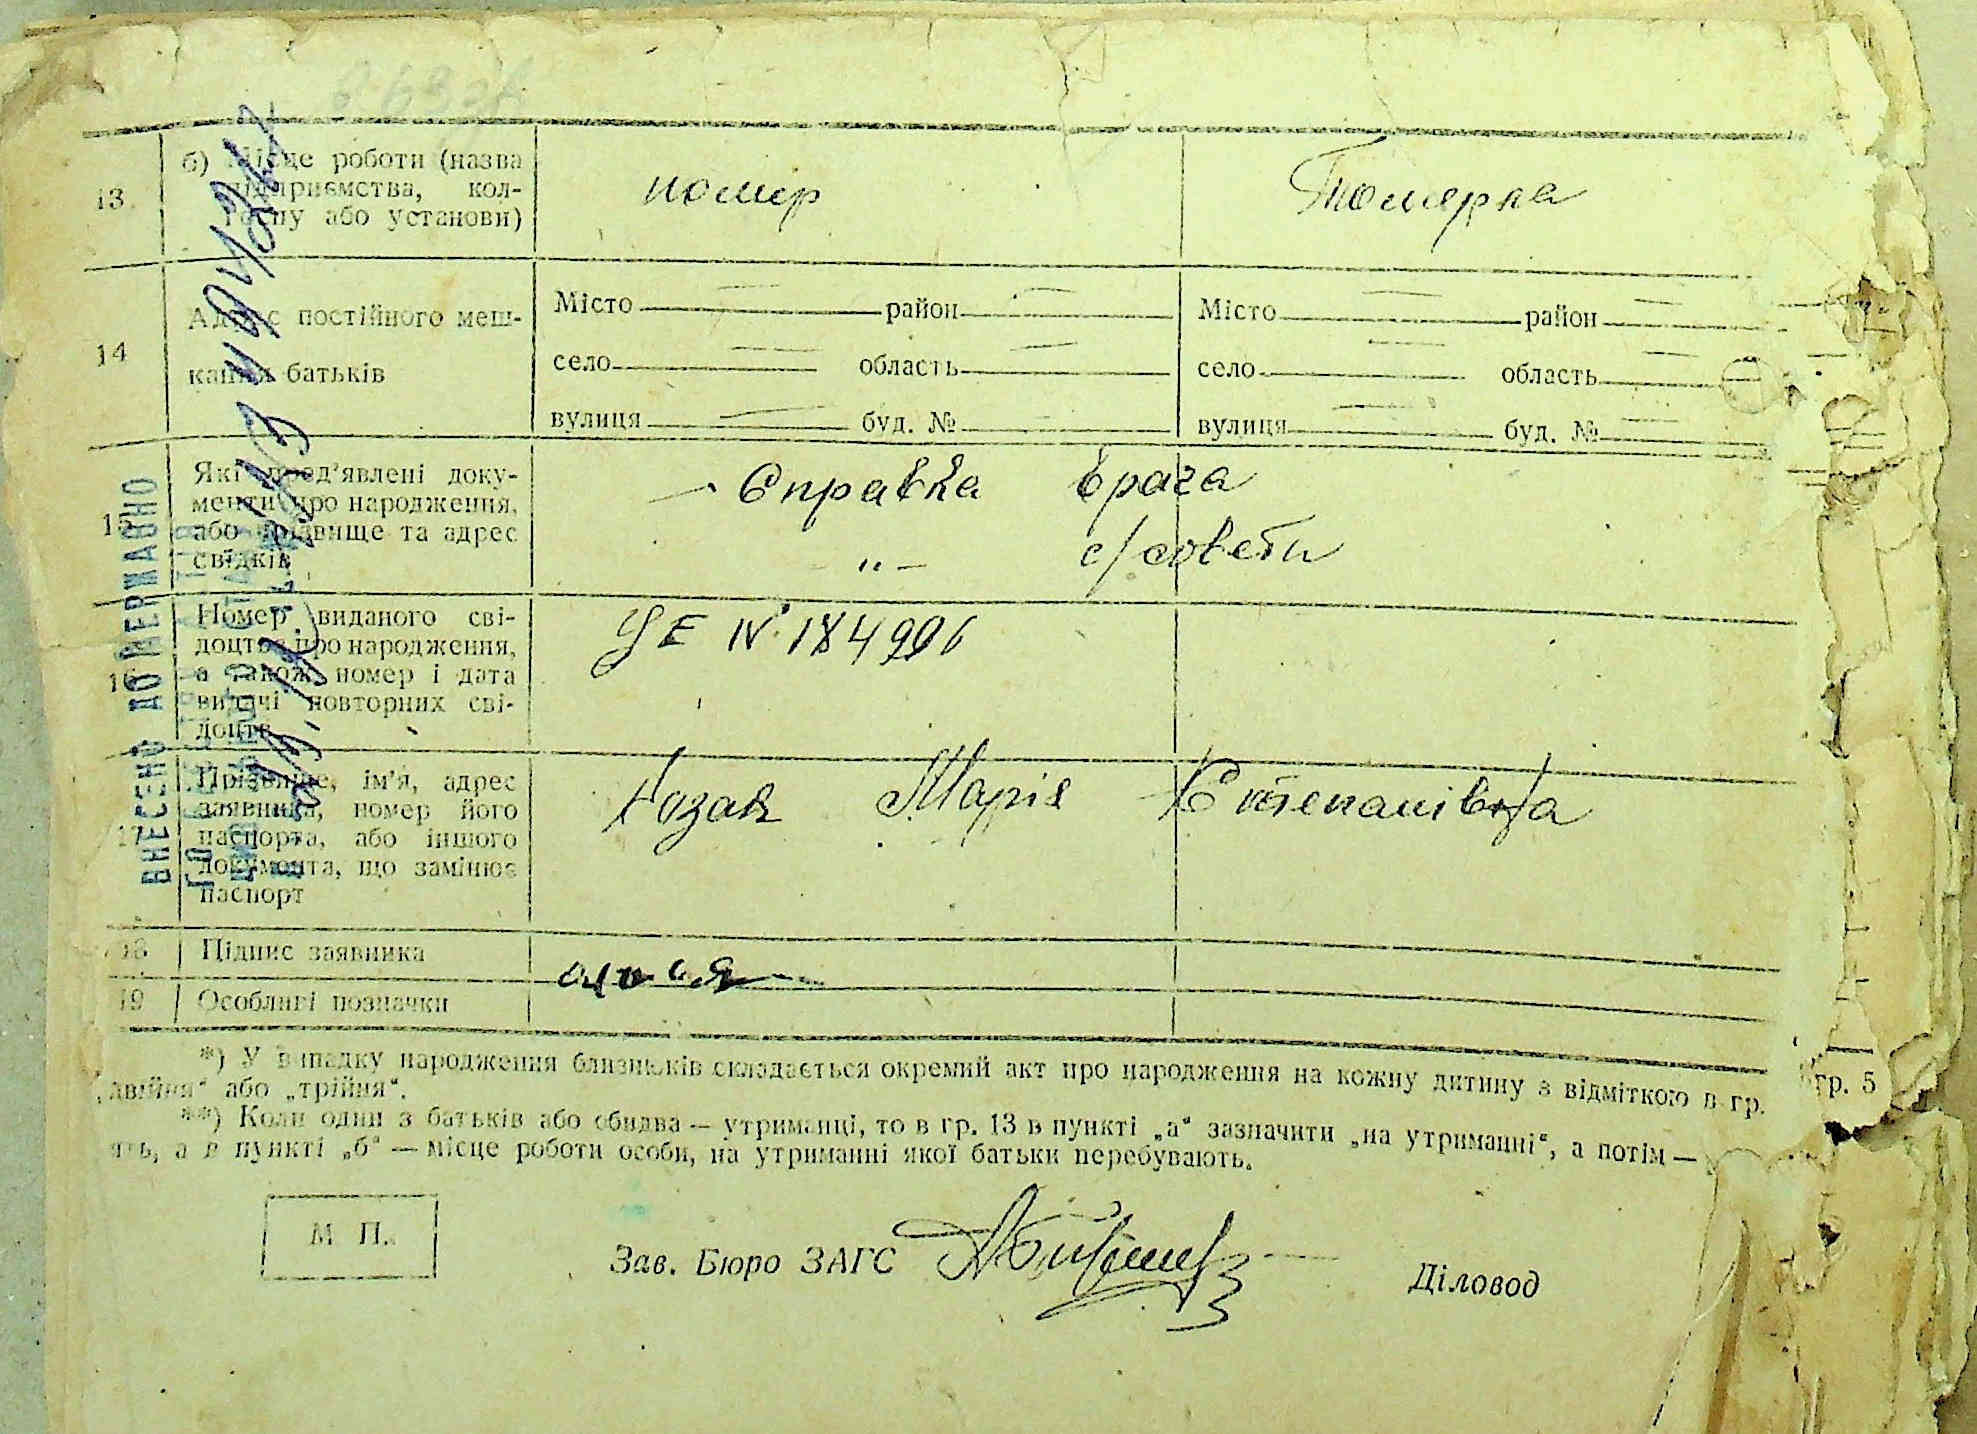 13
б) Місце роботи (назва
підприємства, кол-
госпу або установи)
помер
Померла
14
Адрес постійного меш-
кання батьків
Місто район
село область
вулиця буд. №
Місто район
село область
вулиця буд. №
15
Які пред'явлені доку-
менти про народження,
або прізвище та адрес
свідків
Справка врача
„ — с/совети
16
Номер виданого сві-
доцтва про народження,
а також номер і дата
видачі повторних сві-
доцтв
УЕ № 184996
17
Прізвище, ім'я, адрес
заявника, номер його
паспорта, або іншого
документа, що замінює
паспорт
Козак Марія Степанівна
18
Підпис заявника
19
Особливі позначки
*) У випадку народження близнюків складається окремий акт про народження на кожну дитину з відміткою в гр. гр. 5
„двійня“ або „трійня“.
**) Коли один з батьків або обидва — утриманці, то в гр. 13 в пункті „а“ зазначити „на утриманні“, а потім —
ять, а в пункті „б“ — місце роботи особи, на утриманні якої батьки перебувають.
М П.
Зав. Бюро ЗАГС
Діловод
ВНЕСЕНО ДО ДЕРЖАВНО